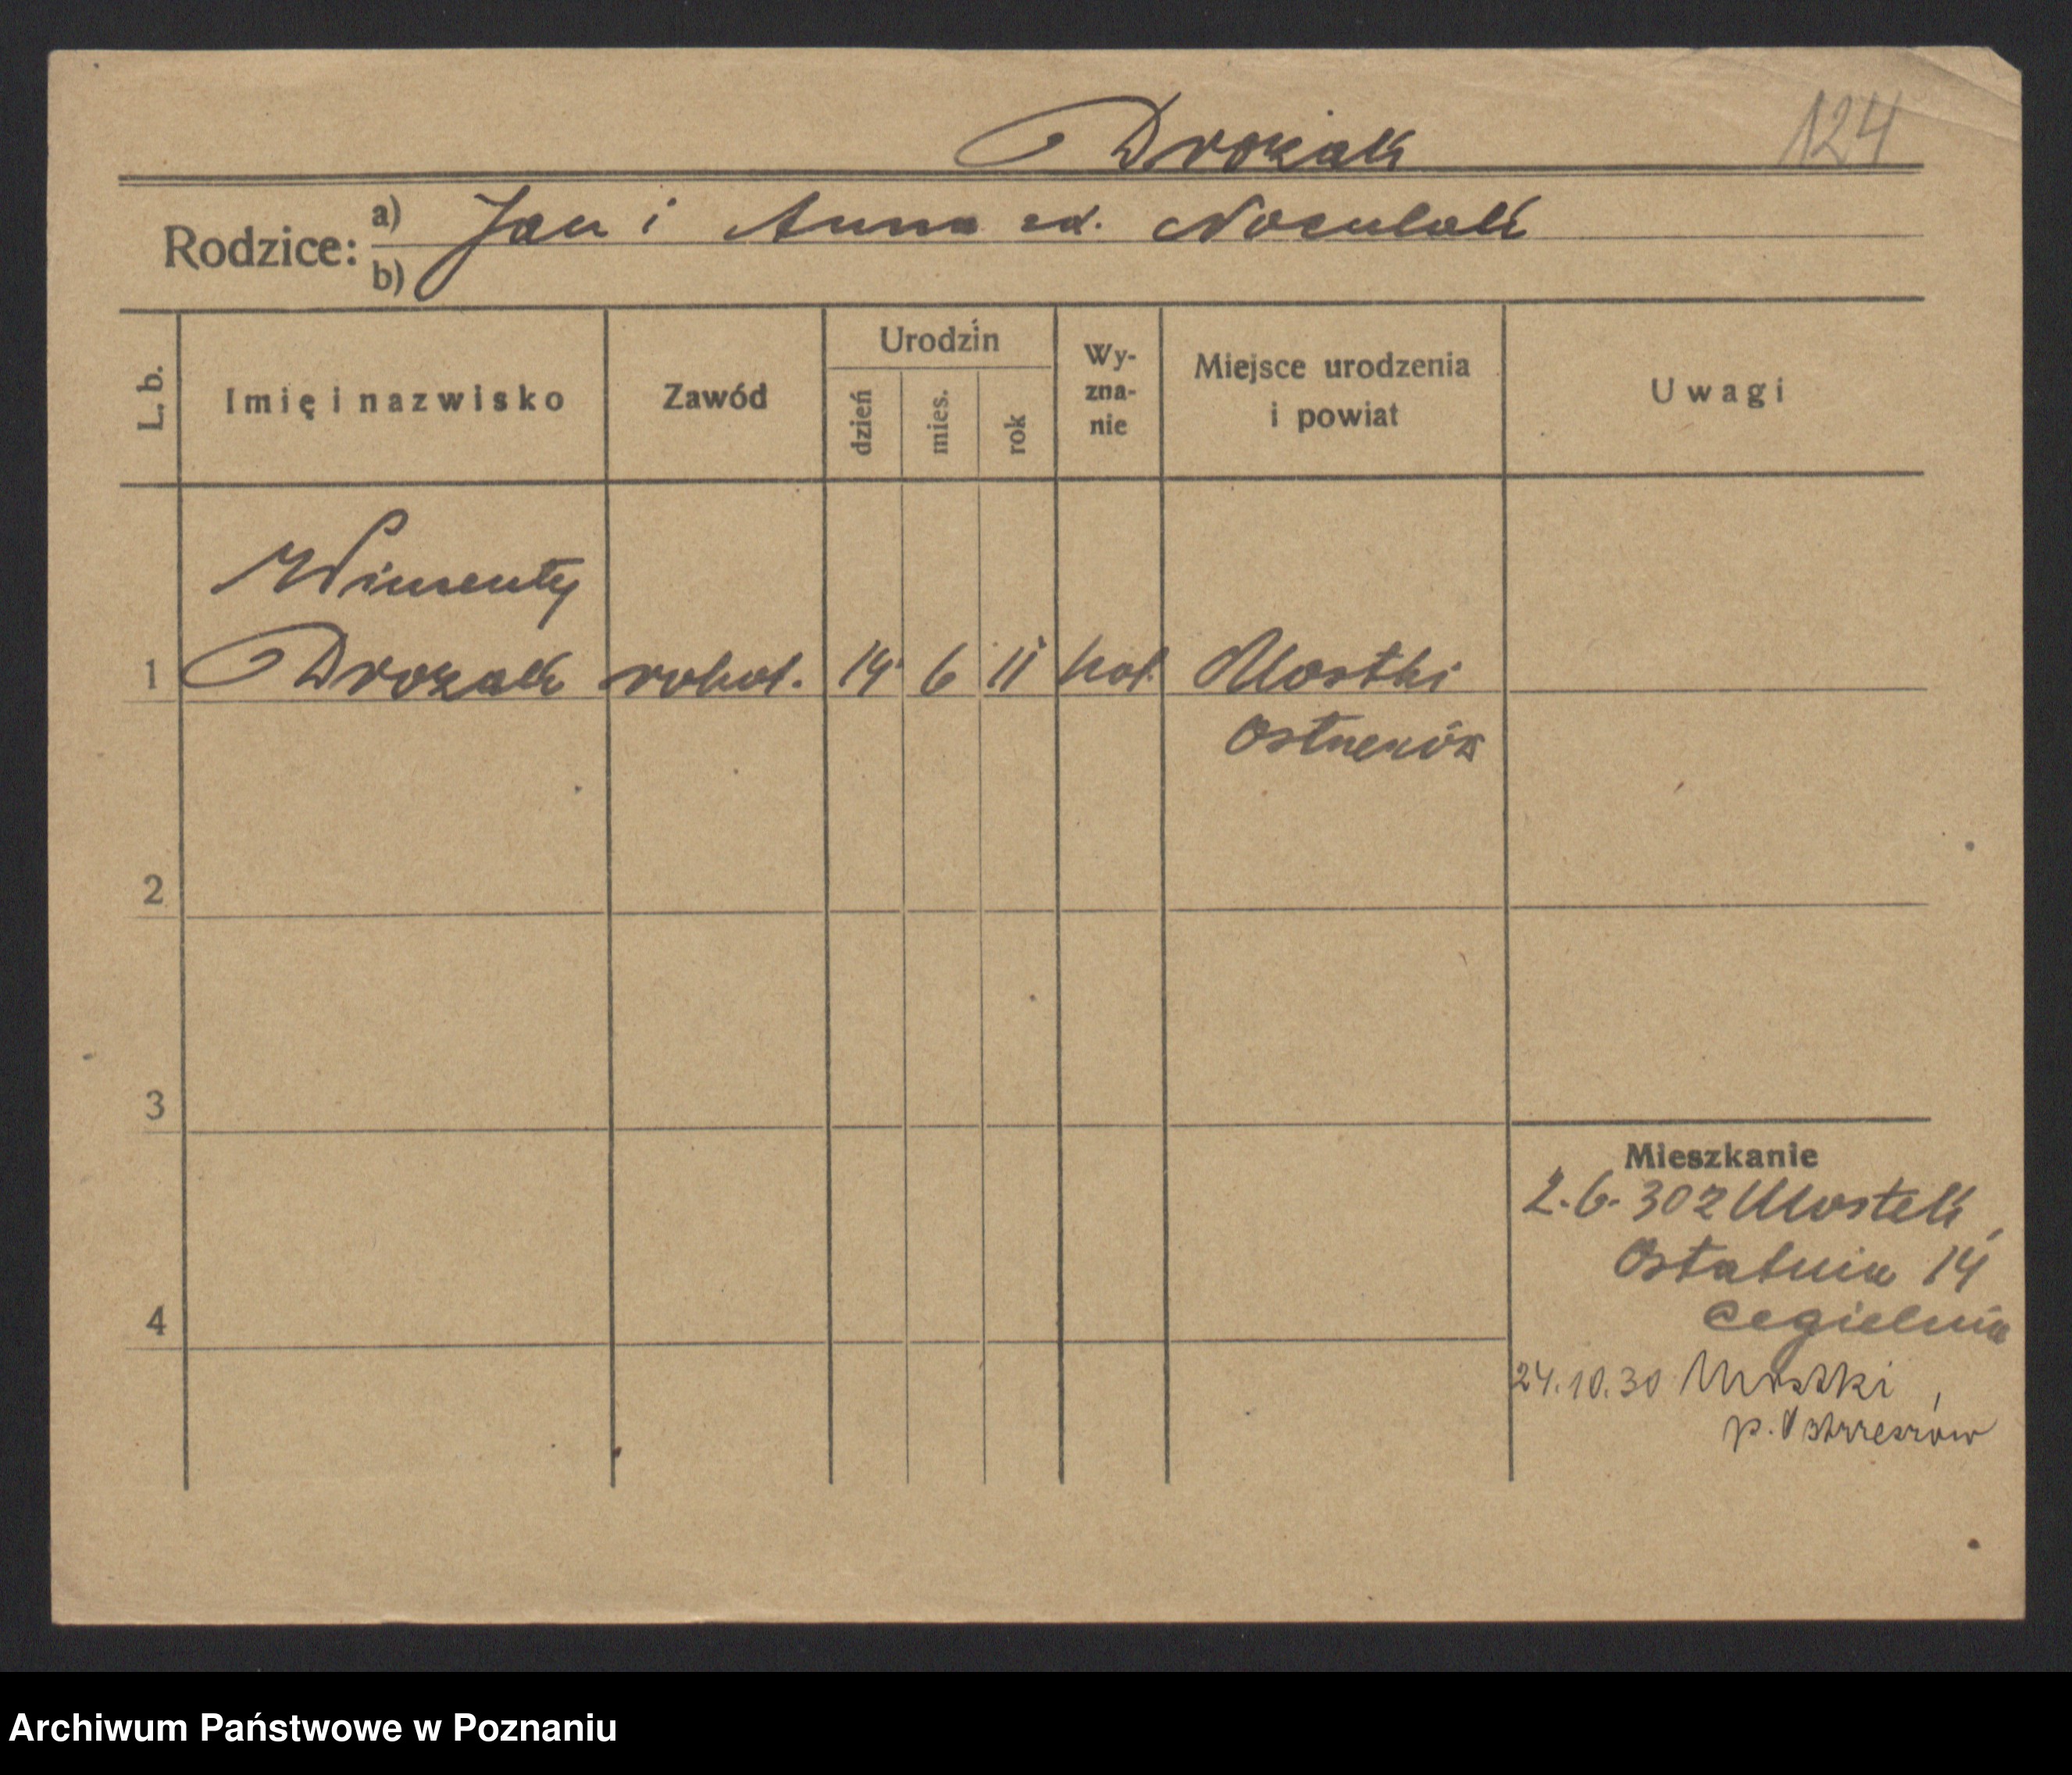 Drozak
124
Rodzice: a) Jan i Anna zd.
b)
L. b.
Imię i nazwisko
Zawód
Urodzin
dzień
mies.
rok
Wy-
zna-
nie
Miejsce urodzenia
i powiat
Uwagi
Wincenty
1 Drozak robot. 14 6 11 kat. Mostki
Ostrzeszów
2
3
4
Mieszkanie
2.6.30 z Mostek,
Ostatnia 14
Cegielnia
24.10.30 Mostki,
p. Ostrzeszów
Archiwum Państwowe w Poznaniu